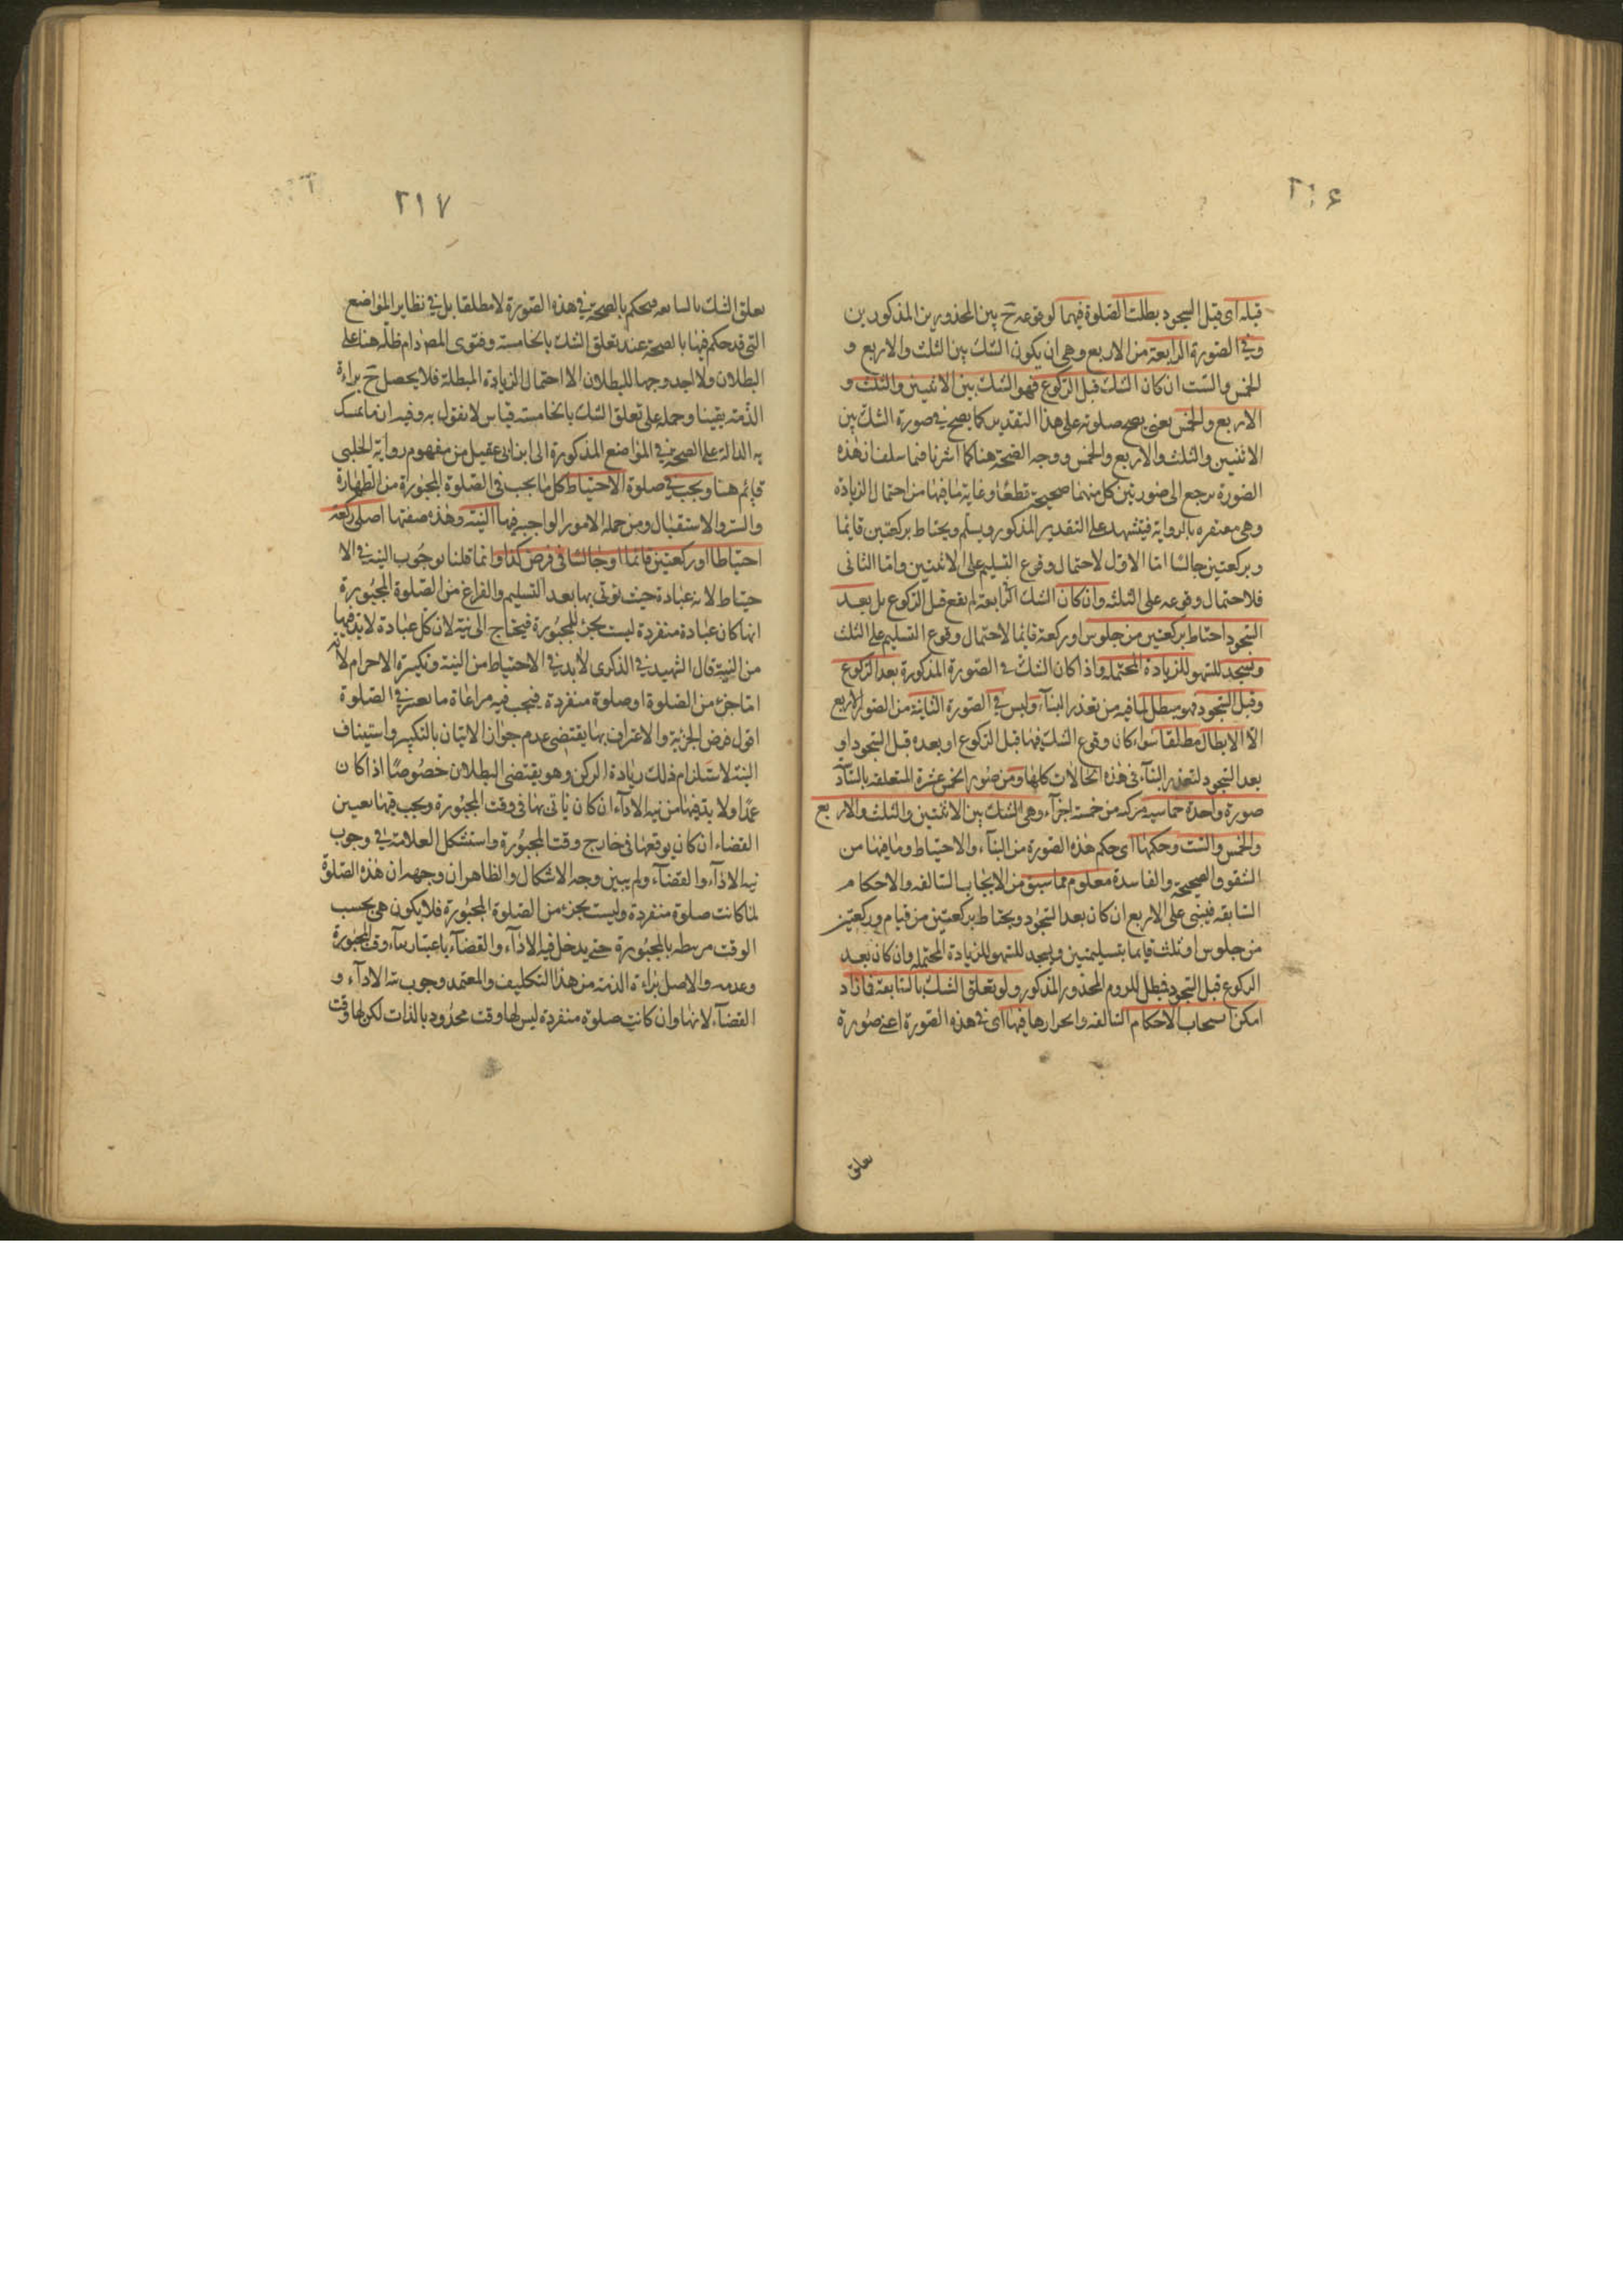 ٢١۶
قبله اى قبل السجود بطلت الصلوة فيهما لوقوعه ح بين المحذورين المذكورين
وفى الصورة الرابعة من الاربع وهى ان يكون الشك بين الثلث والاربع و
الخمس والست ان كان الشك قبل الركوع فهو الشك بين الاثنين والثلث و
الاربع والخمس يعنى يصح صلوته على هذا التقدير كما يصح فى صورة الشك بين
الاثنين والثلث والاربع والخمس ووجه الصحة هنا كما اشرنا فيما سلف ان هذه
الصورة يرجع الى صورتين كل منهما صحيحة قطعا وغاية ما فيها من احتمال الزيادة
وهى مغتفره بالرواية فيتشهد على التقدير المذكور ويسلم ويحتاط بركعتين قايما
وبركعتين جالسا اما الاول لاحتمال وقوع التسليم على الاثنتين واما الثانى
فلاحتمال وقوعه على الثلثه وان كان الشك الرابعة لم يقع قبل الركوع بل بعد
السجود احتاط بركعتين من جلوس او ركعة قايما لاحتمال وقوع التسليم على الثلث
ويسجد للسهو للزيادة المحتمله واذا كان الشك فى الصورة المذكورة بعد الركوع
وقبل السجود فهو مبطل لما فيه من تعذر البنآء وليس فى الصورة الثانية من الصور الاربع
الا الابطال مطلقا سواء كان وقوع الشك فيها قبل الركوع او بعده قبل السجود او
بعد السجود لتعذر البنآء فى هذه الحالات كلها ومن صور الخمس عشرة المتعلقه بالسادسة
صورة واحدة خماسيه مركبه من خمسة اجزآء وهى الشك بين الاثنتين والثلث والاربع
والخمس والست وحكمها اى حكم هذه الصورة من البنآء والاحتياط وما فيها من
الشقوق الصحيحة والفاسدة معلوم مما سبق من الابحاث السالفه والاحكام
السابقه فيبنى على الاربع ان كان بعد السجود ويحتاط بركعتين من قيام وركعتين
من جلوس او ثلث قايما بتسليمتين ويسجد للسهو للزيادة المحتمله وان كان بعد
الركوع قبل السجود فبطل للزوم المحذور المذكور ولو تعلق الشك بالسابعة فازاد
امكن انسحاب الاحكام السالفه وانجرارها فيها اى فى هذه الصورة اعنى صورة
تعلق
٢١٧
تعلق الشك بالسابعه فيحكم بالصحة فى هذه الصورة لا مطلقا بل فى نظاير المواضع
التى قد حكم فيها بالصحة عند تعلق الشك بالخامسة وفتوى المص دام ظله هنا على
البطلان ولا اجد وجها للبطلان الا احتمال الزيادة المبطلة فلا يحصل ح براءة
الذمة يقينا وحمله على تعلق الشك بالخامسة قياس لا نقول به وفيه ان ما تمسك
به الدالة على الصحة فى المواضع المذكورة الى ابن ابى عقيل من مفهوم رواية الحلبى
قايم هنا ويجب فى صلوة الاحتياط كل ما يجب فى الصلوة المجبورة من الطهارة
والستر والاستقبال ومن جمله الامور الواجبه فيها النية وهذه صفتها اصلى ركعة
احتياطا او ركعتين قايما او جالسا فى فرض كذا وانما قلنا بوجوب النية فى الا
حتياط لانه عبادة حيث يؤتى بها بعد التسليم والفراغ من الصلوة المجبورة
انها كان عبادة منفردة ليست بجزء للمجبورة فيحتاج الى نية لان كل عبادة لا بد فيها
من النية قال الشهيد فى الذكرى لا بد فى الاحتياط من النية وتكبيرة الاحرام لانه
اما جزء من الصلوة او صلوة منفردة فيجب فيه مراعاة ما يعتبر فى الصلوة
اقول فرض الجزئية والاعتراف بها يقتضى عدم جواز الاتيان بالتكبير واستيناف
النية لاستلزام ذلك زيادة الركن وهو يقتضى البطلان خصوصا اذا كان
عمدا ولا بد فيها من نية الادآء ان كان ياتى بها فى وقت المجبورة ويجب فيها تعيين
القضاء ان كان يوقعها فى خارج وقت المجبورة واستشكل العلامة فى وجوب
نية الادآء والقضآء ولم يبين وجه الاشكال والظاهر ان وجهه ان هذه الصلوة
لما كانت صلوة منفردة وليست بجزء من الصلوة المجبورة فلا يكون هى بحسب
الوقت مرتبطه بالمجبورة حتى يدخل فيه الادآء والقضآء باعتبار بقاء وقت المجبورة
وعدمه والاصل براءة الذمة من هذا التكليف والمعتمد وجوب نية الادآء و
القضآء لانها وان كانت صلوة منفردة ليس لها وقت محدود بالذات لكن لها وقت